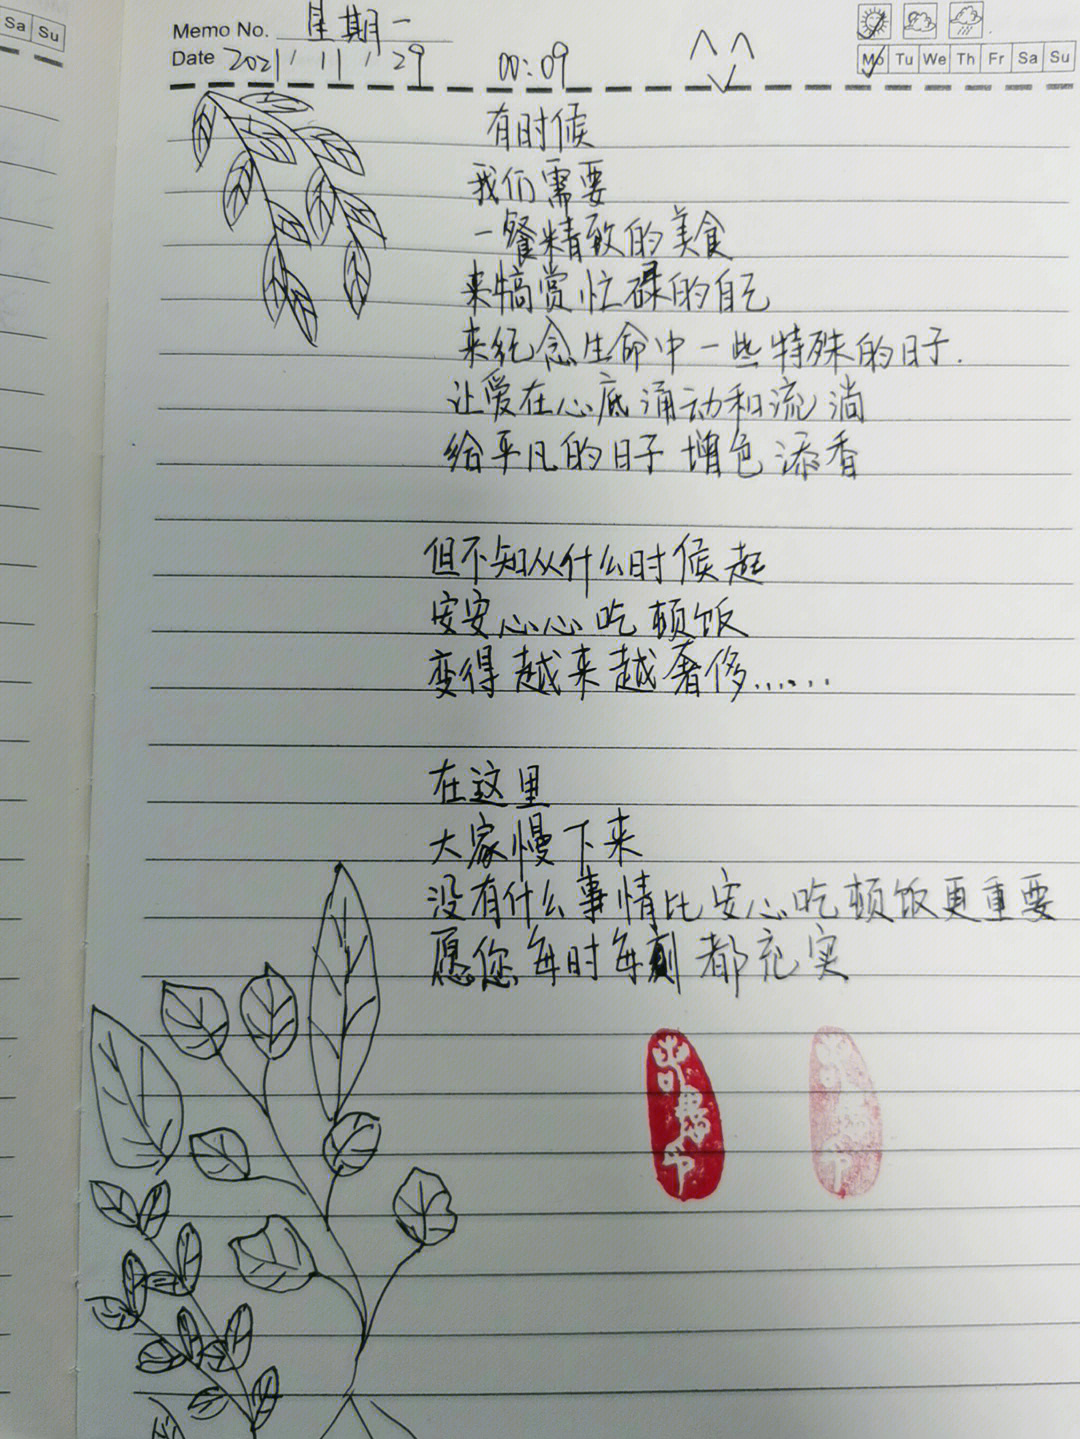 Sa Su
Memo No. 星期一
Date 2021 / 11 / 29 00:09
Mo Tu We Th Fr Sa Su
有时候
我们需要
一餐精致的美食
来犒赏忙碌的自己
来纪念生命中一些特殊的日子.
让爱在心底涌动和流淌
给平凡的日子增色添香
但不知从什么时候起
安安心心吃顿饭
变得越来越奢侈……
在这里
大家慢下来
没有什么事情比安心吃顿饭更重要
愿您每时每刻都充实